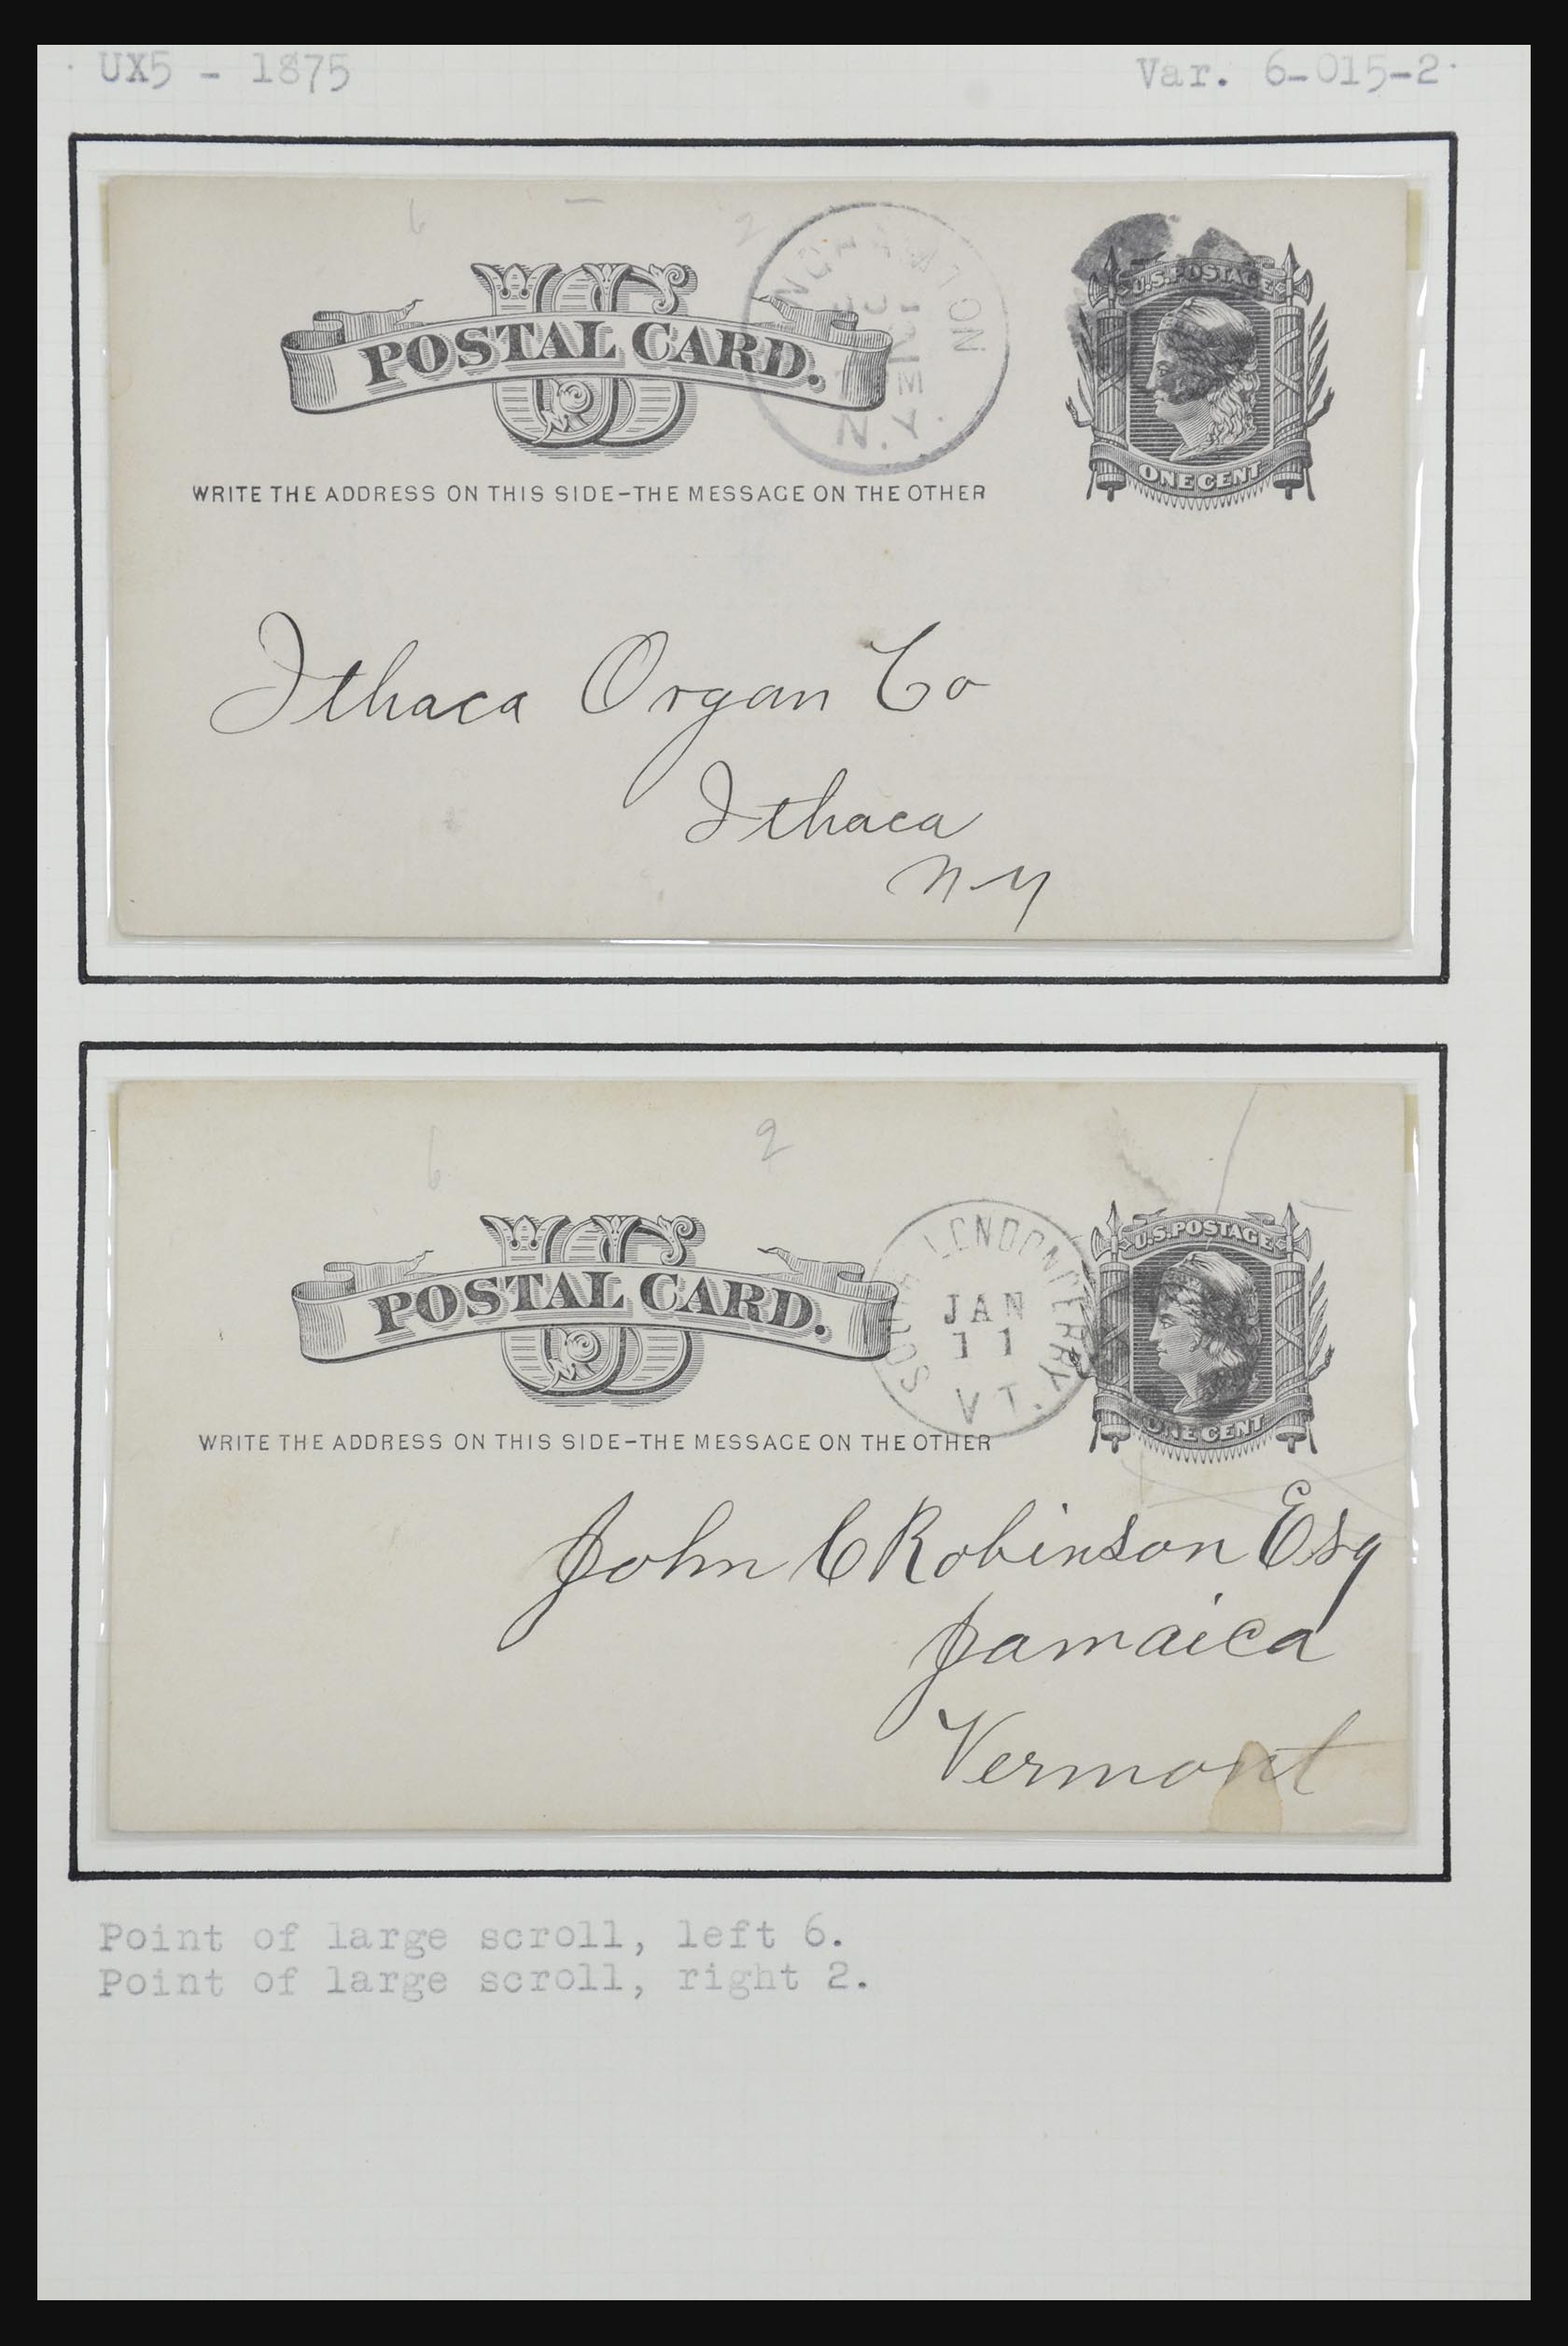 UX5 - 1875
Var. 6-015-2
6 - 2
POSTAL CARD.
US
N.Y.
U.S. POSTAGE
ONE CENT
WRITE THE ADDRESS ON THIS SIDE-THE MESSAGE ON THE OTHER
Ithaca Organ Co
Ithaca
N-Y
6 2
POSTAL CARD.
US
SOUTH LONDONDERRY
JAN
11
VT.
U.S. POSTAGE
ONE CENT
WRITE THE ADDRESS ON THIS SIDE-THE MESSAGE ON THE OTHER
John C Robinson Esq
Jamaica
Vermont
Point of large scroll, left 6.
Point of large scroll, right 2.